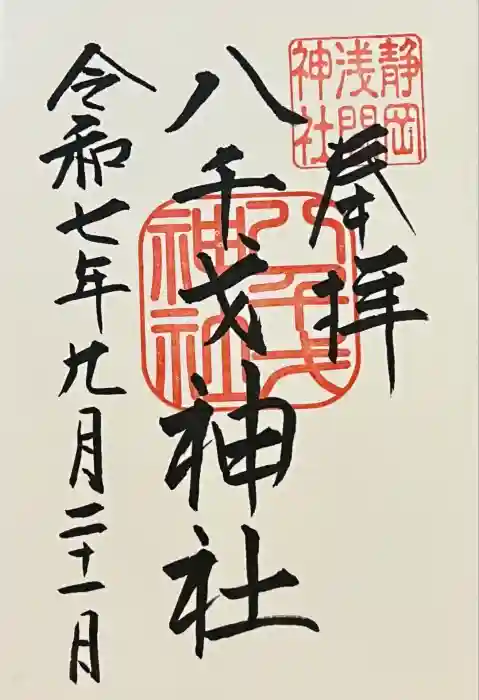 静岡
浅間
神社
奉拝
八千戈神社
八千戈
神社
令和七年九月二十一日